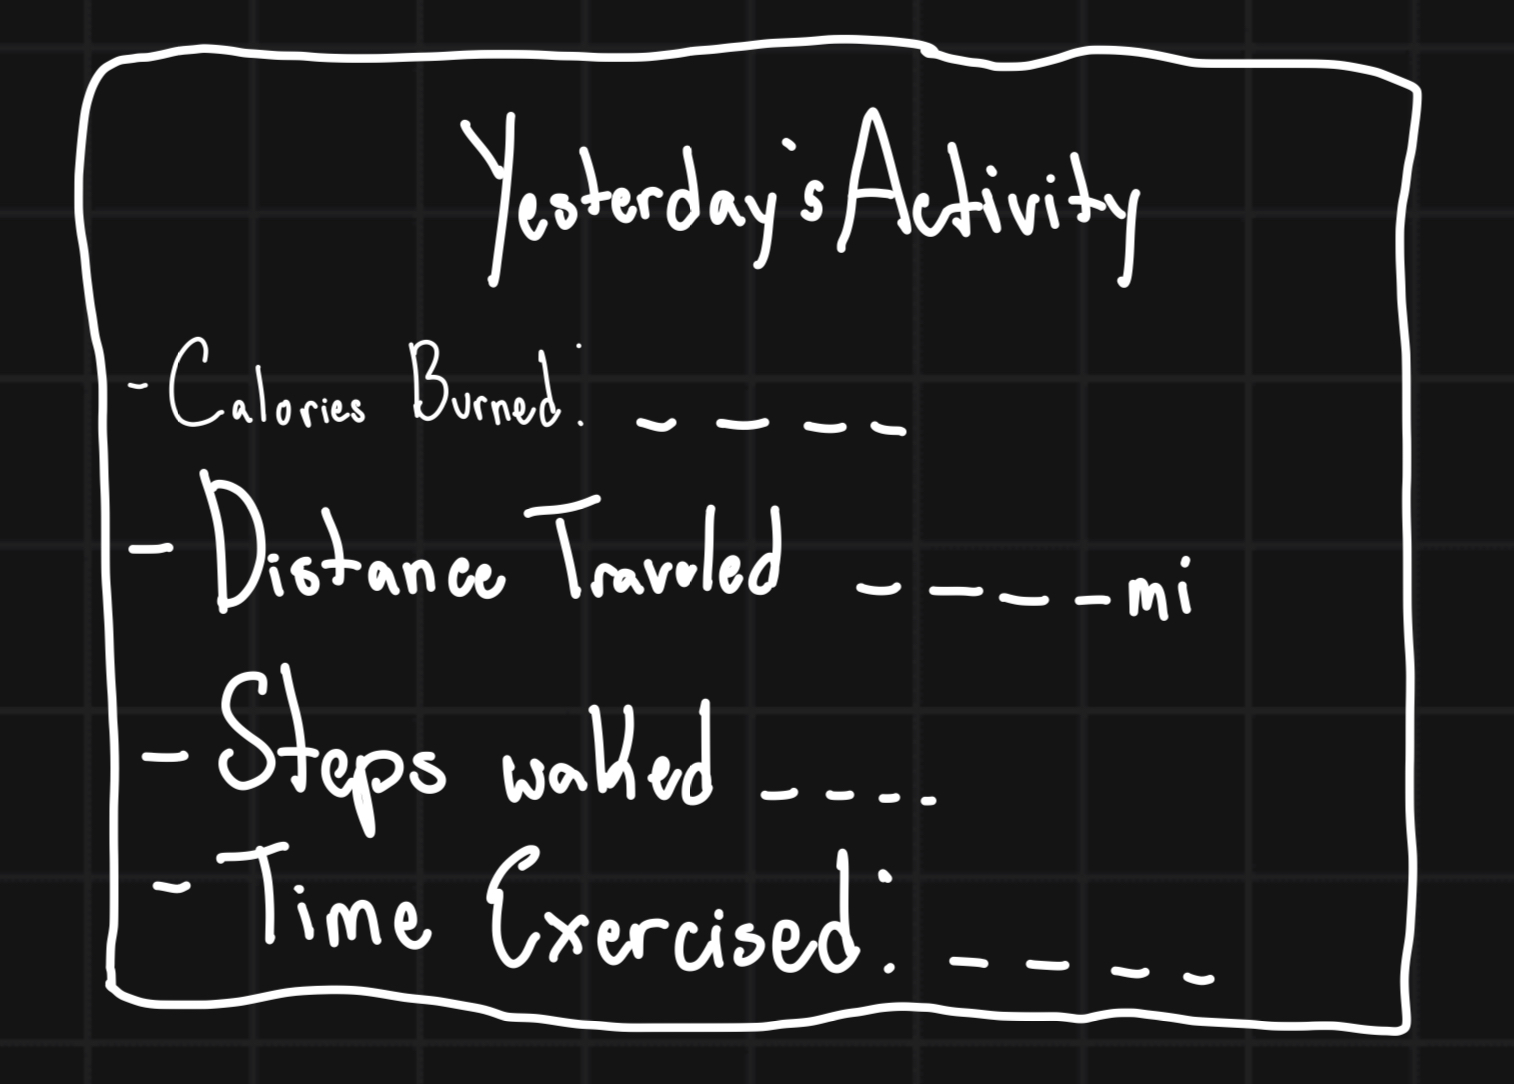 Yesterday's Activity
- Calories Burned: _ _ _ _
- Distance Traveled _ _ _ _ mi
- Steps walked _ _ _ _
- Time Exercised: _ _ _ _